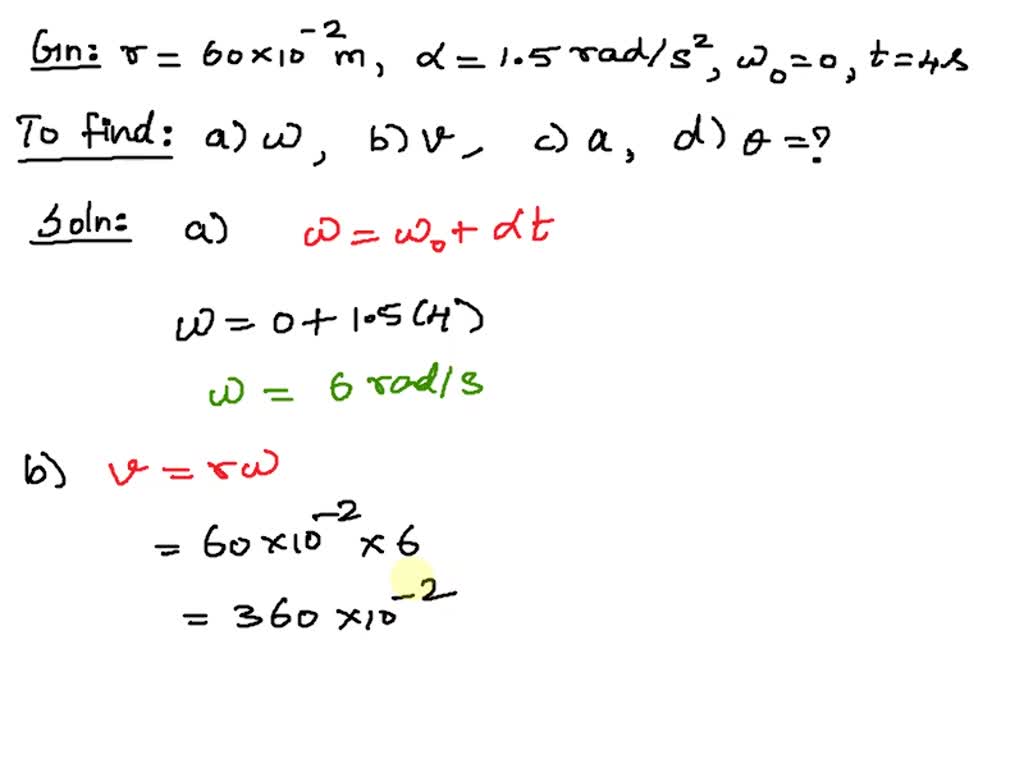 Gn: r = 60×10⁻² m, α = 1.5 rad/s², ω₀ = 0, t = 4s
To find: a) ω, b) v, c) a, d) θ = ?
Soln: a) ω = ω₀ + αt
ω = 0 + 1.5(4)
ω = 6 rad/s
b) v = rω
= 60×10⁻² × 6
= 360×10⁻²